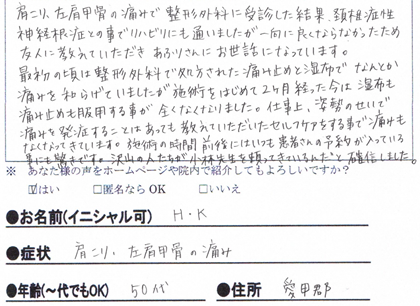 肩こり、左肩甲骨の痛みで整形外科に受診した結果、頚椎症性
神経根症との事でリハビリにも通いましたが一向に良くならなかったため
友人に教えていただきあおりさんにお世話になっています。
最初の頃は整形外科で処方された痛み止めと湿布でなんとか
痛みを和らげていましたが施術をはじめて2ヶ月経った今は湿布も
痛み止めも服用する事が全くなくなりました。仕事上、姿勢のせいで
痛みを発症することはあっても教えていただいたセルフケアをする事で痛みも
なくなってきています。施術の時間前後にはいつも患者さんの予約が入っている
事にも驚きです。沢山の人たちが小林先生を頼ってきているんだと確信しました。
※ あなた様の声をホームページや院内で紹介してもよろしいですか?
☑はい □匿名なら OK □いいえ
●お名前(イニシャル可) H・K
●症状 肩こり、左肩甲骨の痛み
●年齢(~代でもOK) 50代 ●住所 愛甲郡